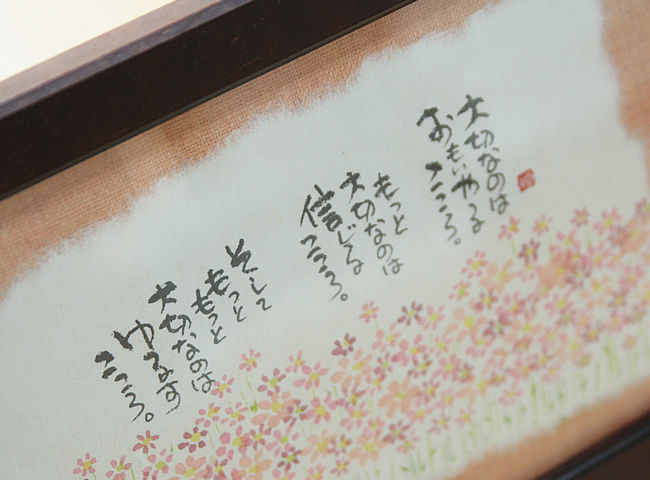 大切なのは
おもいやる
こころ。
もっと
大切なのは
信じる
こころ。
そして
もっと
もっと
大切なのは
ゆるす
こころ。